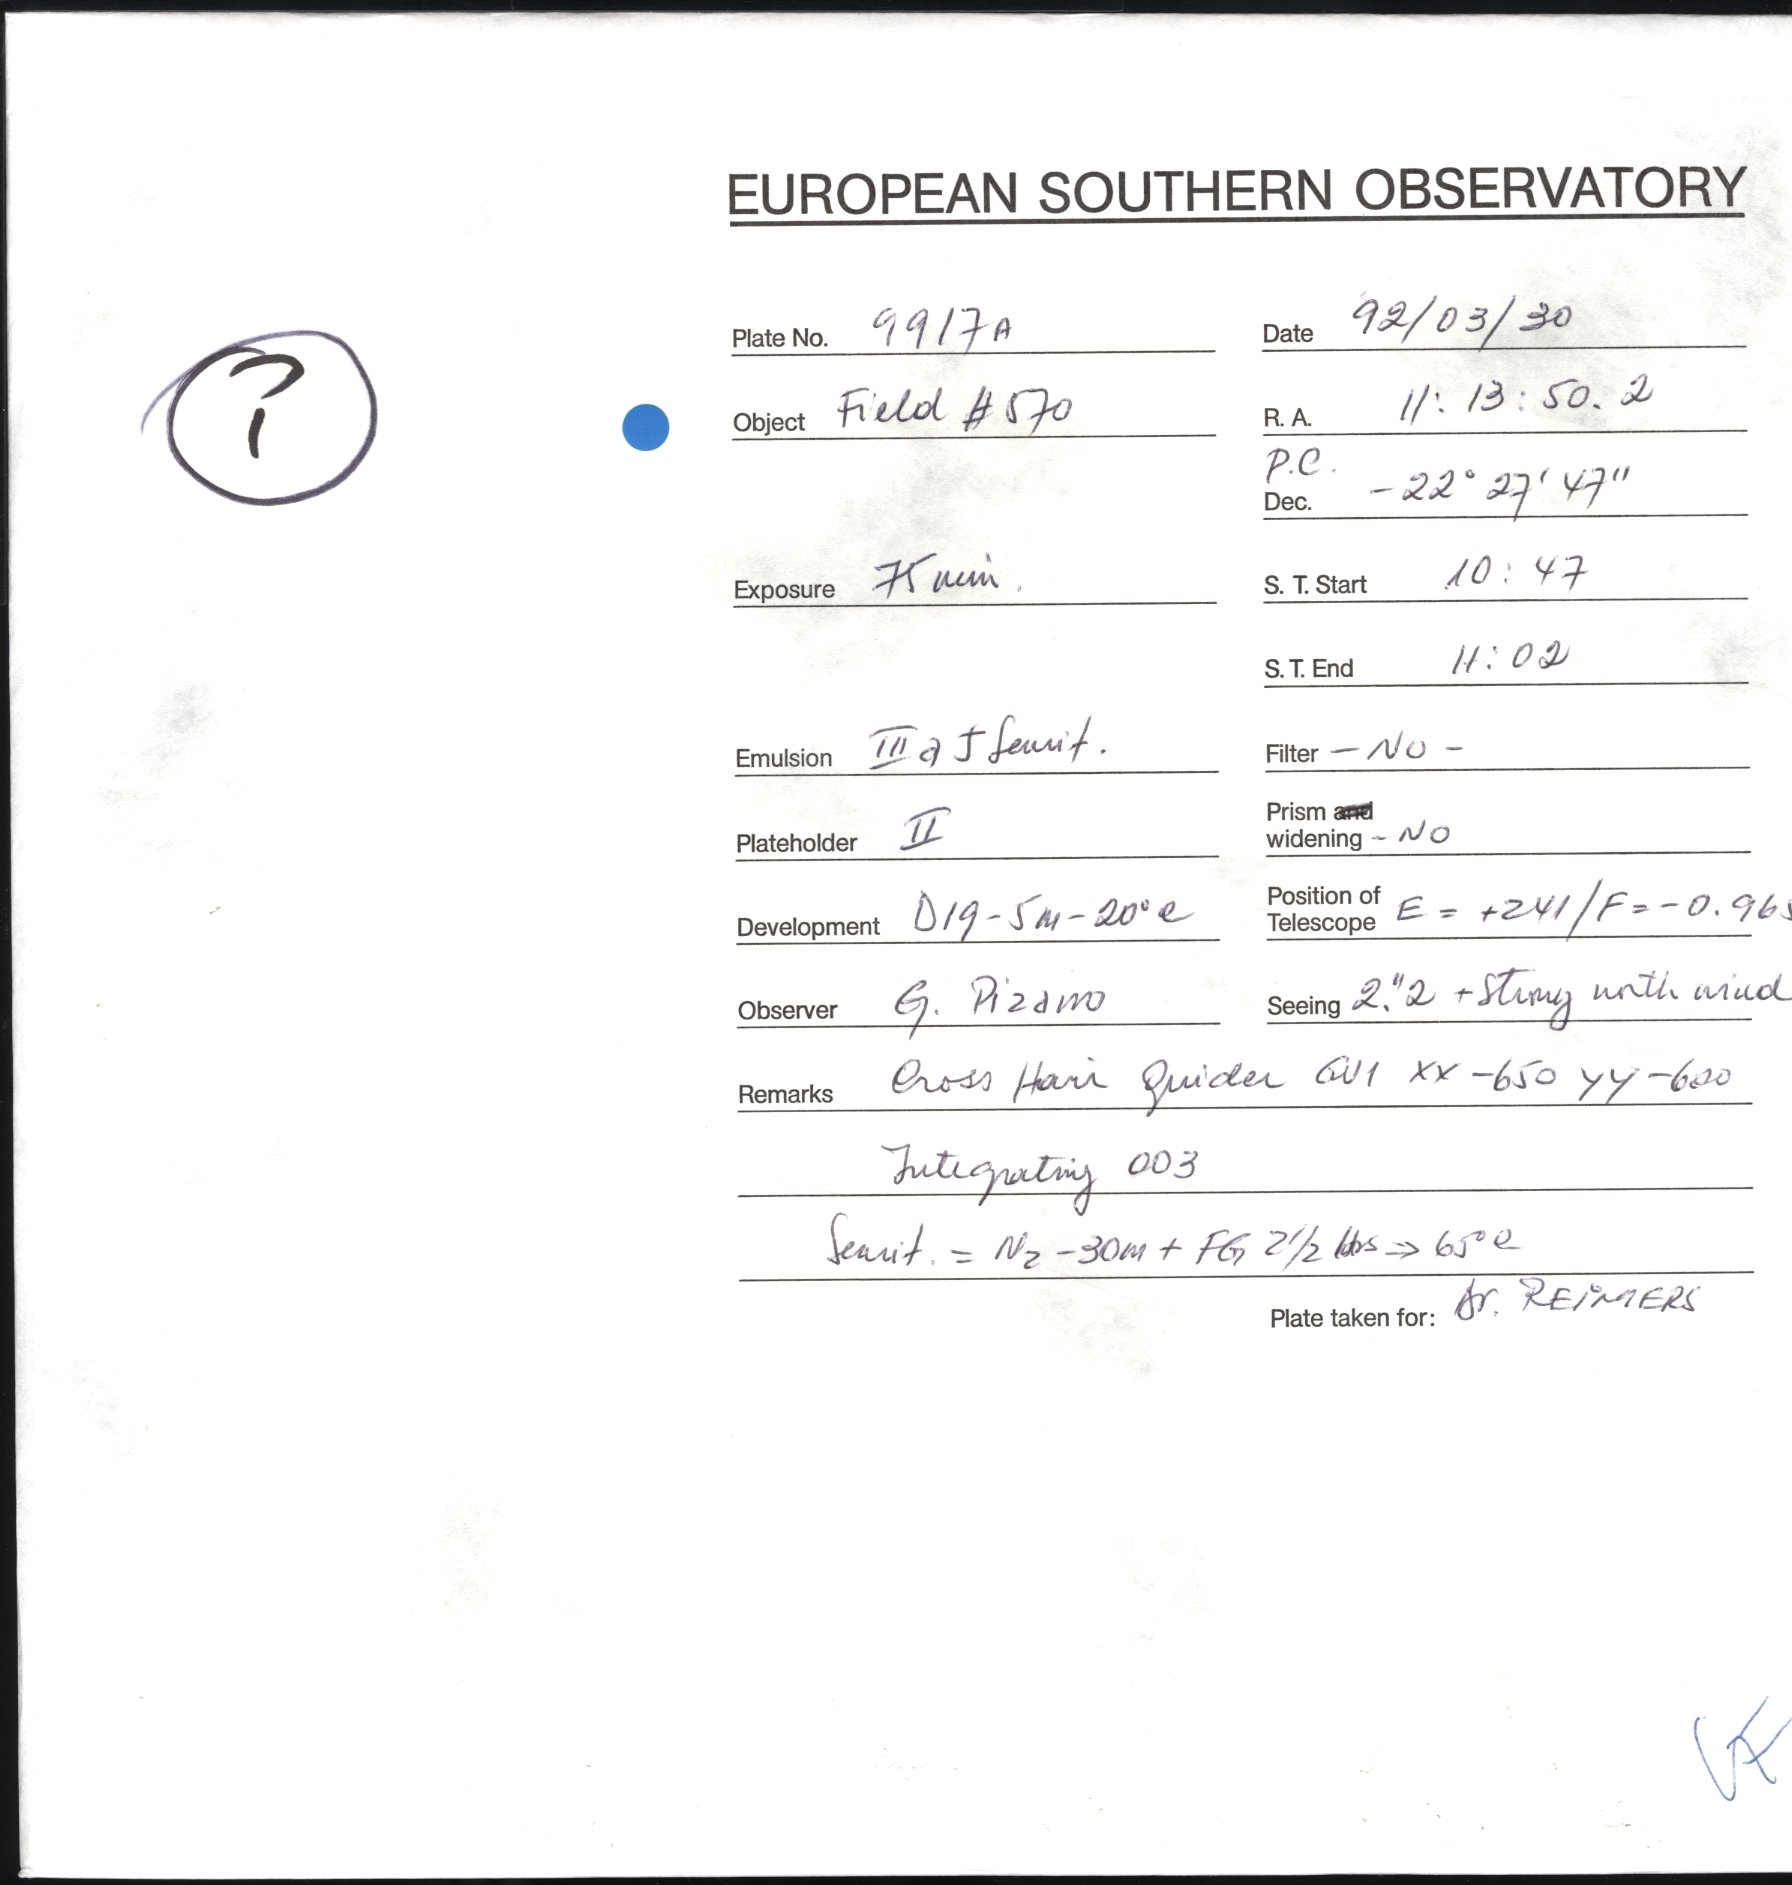 EUROPEAN SOUTHERN OBSERVATORY
Plate No. 9917A Date 92/03/30
?
Object Field #570 R. A. 11: 13: 50. 2
P.C.
Dec. -22° 27' 47"
Exposure 75 min. S. T. Start 10: 47
S. T. End 11: 02
Emulsion III a J Sensit. Filter - NO -
Plateholder II Prism and widening - NO
Development D19-5m-20°C Position of Telescope E = +241/F=-0.965
Observer G. Pizarro Seeing 2."2 + Strong north wind
Remarks Cross Hair Guider GV1 XX -650 YY -600
Integrating 003
Sensit. = N2 -30m + FG 2 1/2 hrs => 65°C
Plate taken for: Dr. REIMERS